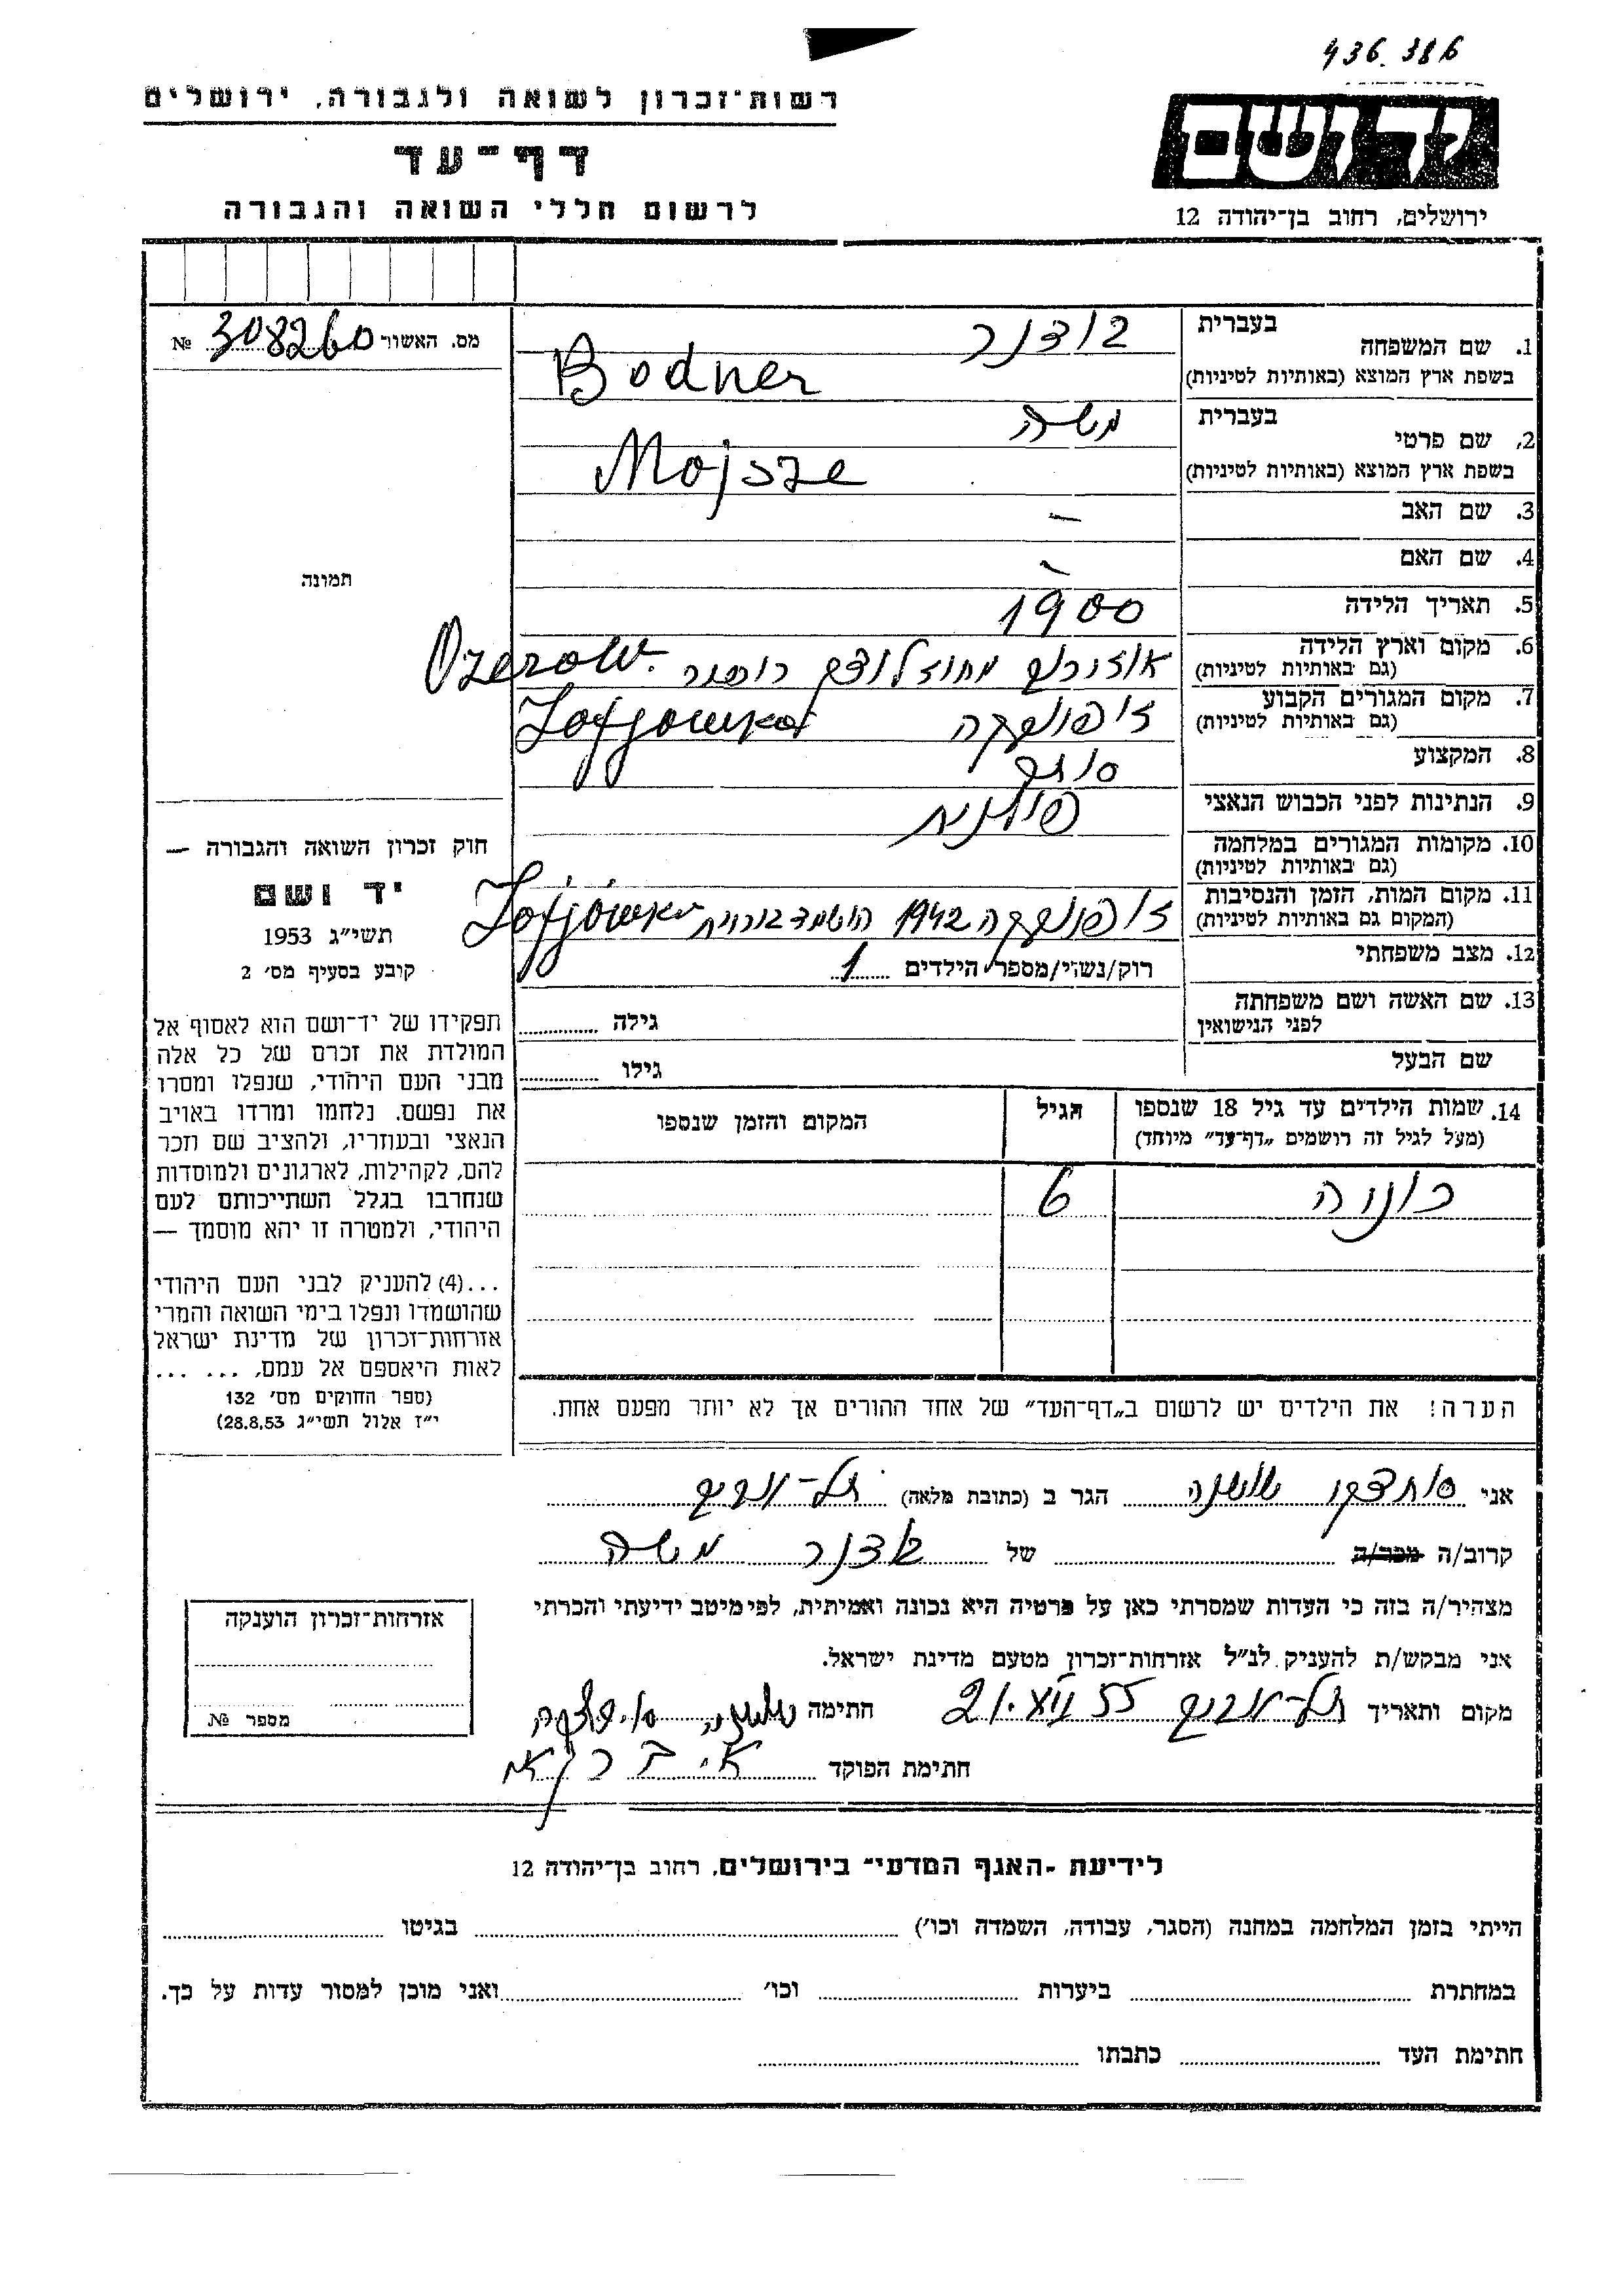 436.386
רשות־זכרון לשואה ולגבורה, ירושלים
דף־עד
לרשום חללי השואה והגבורה
יד ושם
ירושלים, רחוב בן־יהודה 12
מס. האשור 308260 №
תמונה
חוק זכרון השואה והגבורה —
יד ושם
תשי״ג 1953
קובע בסעיף מס׳ 2
תפקידו של יד־ושם הוא לאסוף אל
המולדת את זכרם של כל אלה
מבני העם היהודי, שנפלו ומסרו
את נפשם. נלחמו ומרדו באויב
הנאצי ובעוזריו, ולהציב שם וזכר
להם, לקהילות, לארגונים ולמוסדות
שנחרבו בגלל השתייכותם לעם
היהודי, ולמטרה זו יהא מוסמך —
...(4) להעניק לבני העם היהודי
שהושמדו ונפלו בימי השואה והמרי
אזרחות־זכרון של מדינת ישראל
לאות היאספם אל עמם, ... ...
(ספר החוקים מס׳ 132
י״ז אלול תשי״ג 28.8.53)
1. שם המשפחה בעברית בודנר
בשפת ארץ המוצא (באותיות לטיניות) Bodner
2. שם פרטי בעברית משה
בשפת ארץ המוצא (באותיות לטיניות) Mojsze
3. שם האב —
4. שם האם —
5. תאריך הלידה 1900
6. מקום וארץ הלידה (גם באותיות לטיניות) אוזירוב מחוז Ozerow.
7. מקום המגורים הקבוע (גם באותיות לטיניות) זופיובקה Zofjowka
8. המקצוע סוחר
9. הנתינות לפני הכבוש הנאצי פולנית
10. מקומות המגורים במלחמה (גם באותיות לטיניות)
11. מקום המות, הזמן והנסיבות (המקום גם באותיות לטיניות) זופיובקה 1942 הושמד Zofjówka
12. מצב משפחתי רוק/נשוי/מספר הילדים 1
13. שם האשה ושם משפחתה לפני הנישואין גילה
שם הבעל גילו
14. שמות הילדים עד גיל 18 שנספו (מעל לגיל זה רושמים „דף־עד״ מיוחד) הגיל המקום והזמן שנספו
6
הערה! את הילדים יש לרשום ב„דף־העד״ של אחד ההורים אך לא יותר מפעם אחת.
אני שושנה הגר ב (כתובת מלאה) תל-אביב
קרוב/ה מכר/ה של בודנר משה
מצהיר/ה בזה כי העדות שמסרתי כאן על פרטיה היא נכונה ואמיתית, לפי מיטב ידיעתי והכרתי
אני מבקש/ת להעניק לנ״ל אזרחות־זכרון מטעם מדינת ישראל.
מקום ותאריך תל-אביב 21.VI.55 חתימה שושנה
חתימת הפוקד
אזרחות־זכרון הוענקה
מספר №
לידיעת ־האגף המדעי״ בירושלים, רחוב בן־יהודה 12
הייתי בזמן המלחמה במחנה (הסגר, עבודה, השמדה וכו׳) בגיטו
במחתרת ביערות וכו׳ ואני מוכן למסור עדות על כך.
חתימת העד כתבתו